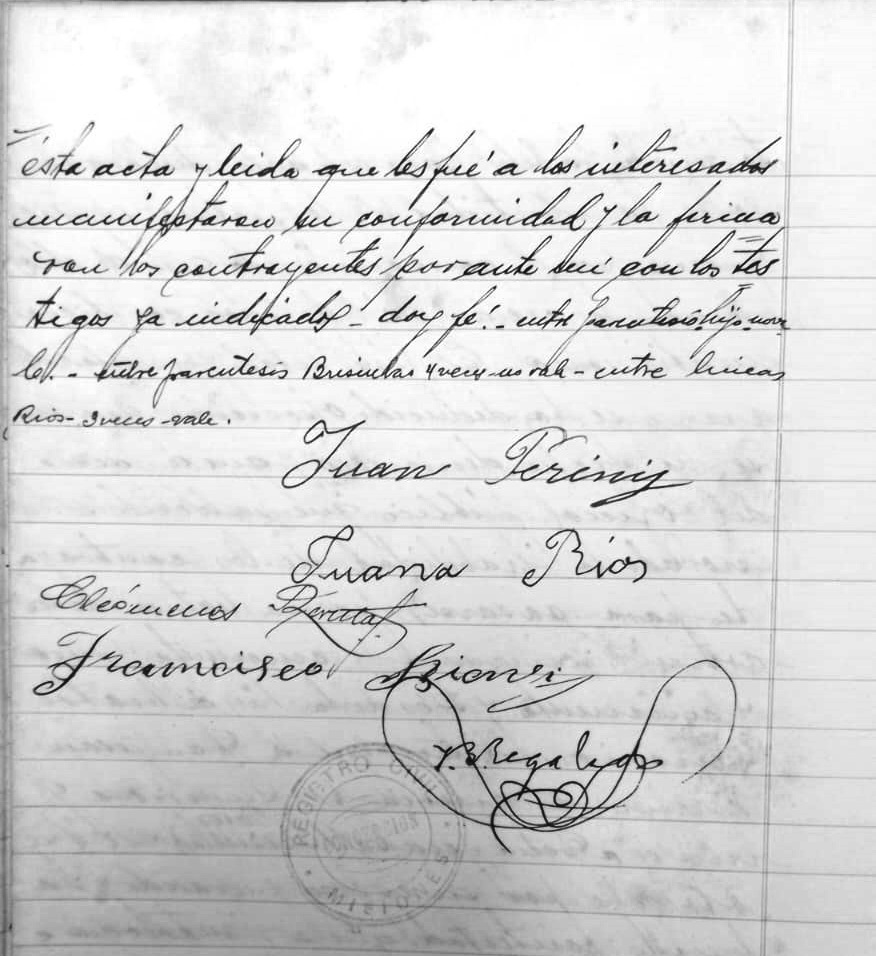 ésta acta y leida que les fué a los interesados
manifestaron su conformidad y la firma
ron los contrayentes por ante mi con los tes
tigos ya indicados - doy fé. - entre parentesis hijo no va
le. - entre parentesis 4 veces - no vale - entre lineas
Rios - 3 veces - vale.
Juan
Juana Ríos
Cleómenes
Francisco
REGISTRO CIVIL
MISIONES